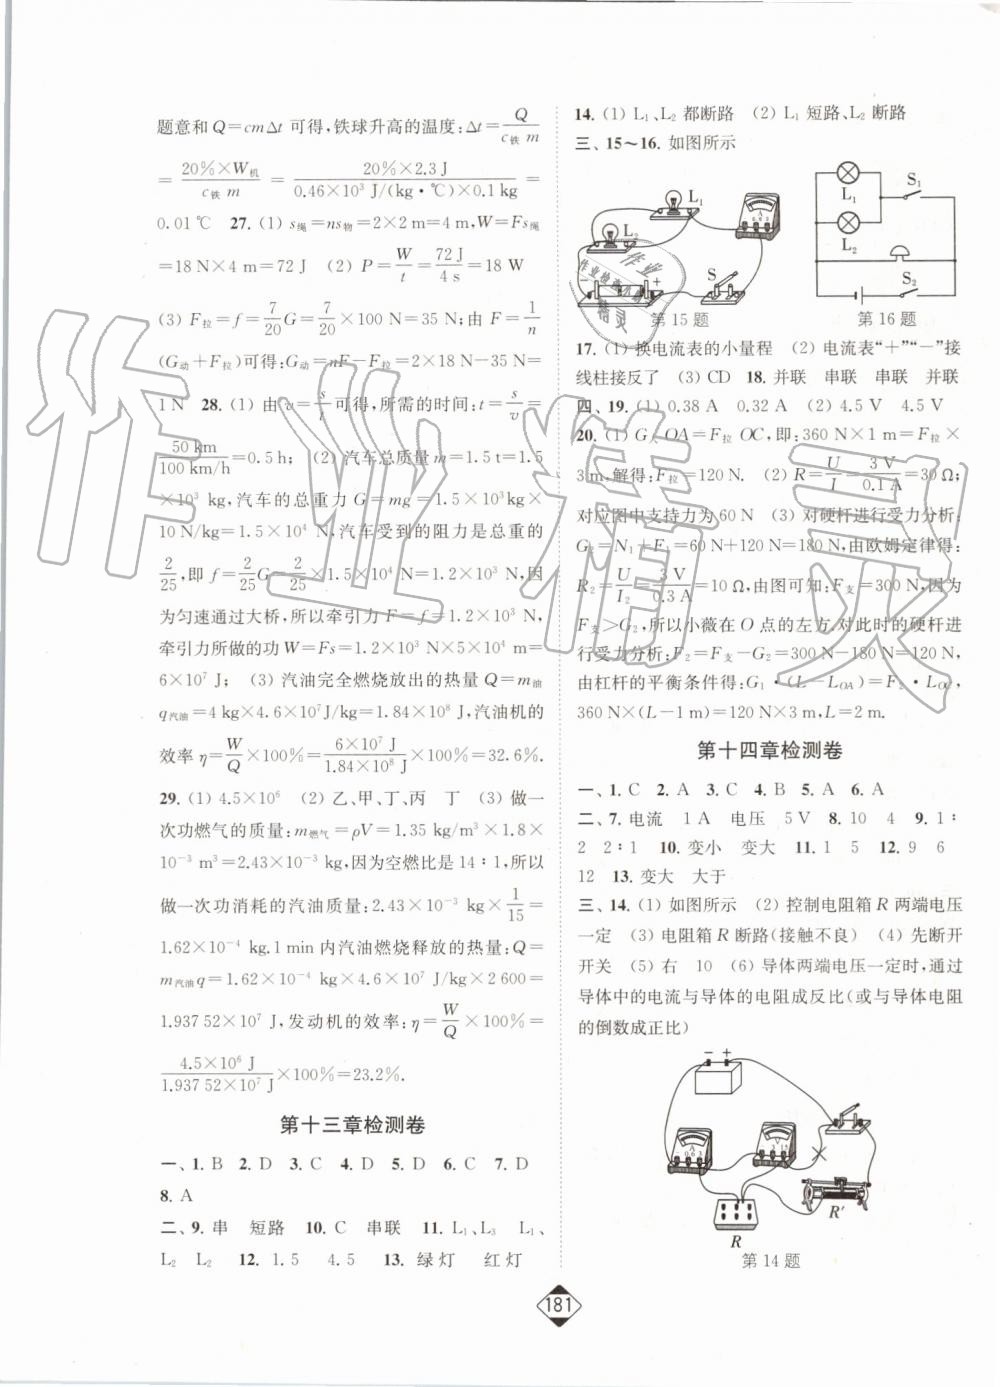 题意和 Q=cmΔt 可得,铁球升高的温度:Δt=Q/(c铁 m)
=(20%×W机)/(c铁 m)=(20%×2.3 J)/(0.46×10³ J/(kg·℃)×0.1 kg)=
0.01 ℃ 27. (1) s绳=ns物=2×2 m=4 m,W=Fs绳
=18 N×4 m=72 J (2) P=W/t=72 J/4 s=18 W
(3) F拉=f=7/20 G=7/20×100 N=35 N;由 F=1/n
(G动+F拉)可得:G动=nF-F拉=2×18 N-35 N=
1 N 28. (1) 由 v=s/t 可得,所需的时间:t=s/v=
50 km/100 km/h=0.5 h; (2) 汽车总质量 m=1.5 t=1.5
×10³ kg,汽车的总重力 G=mg=1.5×10³kg×
10 N/kg=1.5×10⁴ N,汽车受到的阻力是总重的
2/25,即 f=2/25 G=2/25×1.5×10⁴ N=1.2×10³ N,因
为匀速通过大桥,所以牵引力 F=f=1.2×10³ N,
牵引力所做的功 W=Fs=1.2×10³ N×5×10⁴ m=
6×10⁷ J; (3) 汽油完全燃烧放出的热量 Q=m油
q汽油=4 kg×4.6×10⁷J/kg=1.84×10⁸ J,汽油机的
效率 η=W/Q×100%=6×10⁷ J/1.84×10⁸ J×100%=32.6%.
29. (1) 4.5×10⁶ (2) 乙、甲、丁、丙 丁 (3) 做一
次功燃气的质量:m燃气=ρV=1.35 kg/m³×1.8×
10⁻³ m³=2.43×10⁻³ kg,因为空燃比是 14∶1,所以
做一次功消耗的汽油质量:2.43×10⁻³ kg×1/15=
1.62×10⁻⁴ kg.1 min 内汽油燃烧释放的热量:Q=
m汽油q=1.62×10⁻⁴ kg×4.6×10⁷ J/kg×2 600=
1.937 52×10⁷ J,发动机的效率:η=W/Q×100%=
4.5×10⁶ J/1.937 52×10⁷ J×100%=23.2%.
第十三章检测卷
一、1. B 2. D 3. C 4. D 5. D 6. C 7. D
8. A
二、9. 串 短路 10. C 串联 11. L₁、L₃ L₁、
L₂ L₂ 12. 1.5 4.5 13. 绿灯 红灯
14. (1) L₁、L₂ 都断路 (2) L₁ 短路、L₂ 断路
三、15～16. 如图所示
L₁
L₂
S
A
0.6 3
- +
第 15 题
L₁
S₁
L₂
S₂
第 16 题
17. (1) 换电流表的小量程 (2) 电流表“+”“-”接
线柱接反了 (3) CD 18. 并联 串联 串联 并联
四、19. (1) 0.38 A 0.32 A (2) 4.5 V 4.5 V
20. (1) G人OA=F拉 OC,即:360 N×1 m=F拉×
3 m,解得:F拉=120 N. (2) R=U/I=3 V/0.1 A=30 Ω;
对应图中支持力为 60 N (3) 对硬杆进行受力分析:
G₂=N₁+F₁=60 N+120 N=180 N,由欧姆定律得:
R₂=U/I₂=3 V/0.3 A=10 Ω,由图可知:F支=300 N,因为
F支>G₂,所以小薇在 O 点的左方,对此时的硬杆进
行受力分析:F₂=F支-G₂=300 N-180 N=120 N,
由杠杆的平衡条件得:G₁·(L-LOA)=F₂·LOC,
360 N×(L-1 m)=120 N×3 m,L=2 m.
第十四章检测卷
一、1. C 2. A 3. C 4. B 5. A 6. A
二、7. 电流 1 A 电压 5 V 8. 10 4 9. 1∶
2 2∶1 10. 变小 变大 11. 1 5 12. 9 6
12 13. 变大 大于
三、14. (1) 如图所示 (2) 控制电阻箱 R 两端电压
一定 (3) 电阻箱 R 断路(接触不良) (4) 先断开
开关 (5) 右 10 (6) 导体两端电压一定时,通过
导体中的电流与导体的电阻成反比(或与导体电阻
的倒数成正比)
- +
A
0.6 3
V
3 15
R
R′
第 14 题
181
作业精灵
作业检查小助
精灵